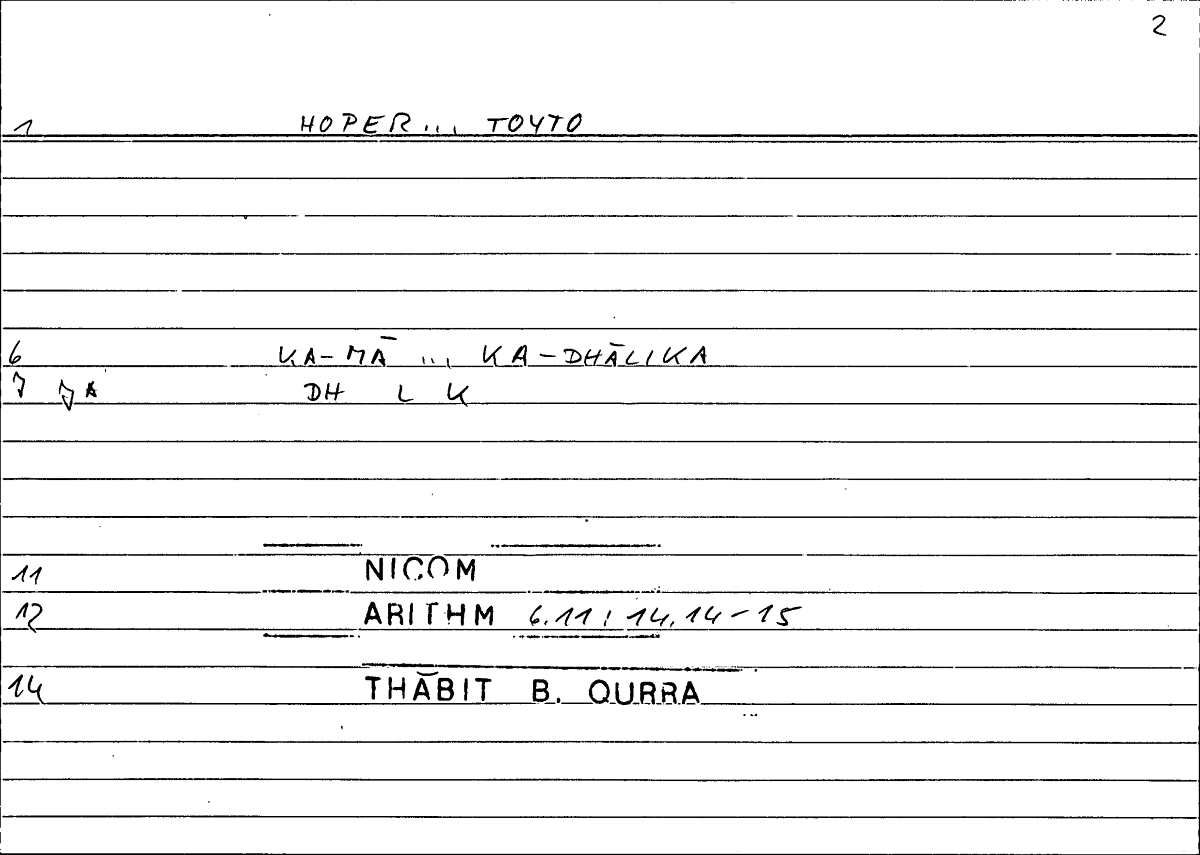 2
1 HOPER... TOYTO
6 KA-MĀ ... KA-DHĀLIKA
7 A DH L K
11 NICOM
12 ARITHM 6.11 : 14.14-15
14 THĀBIT B. QURRA